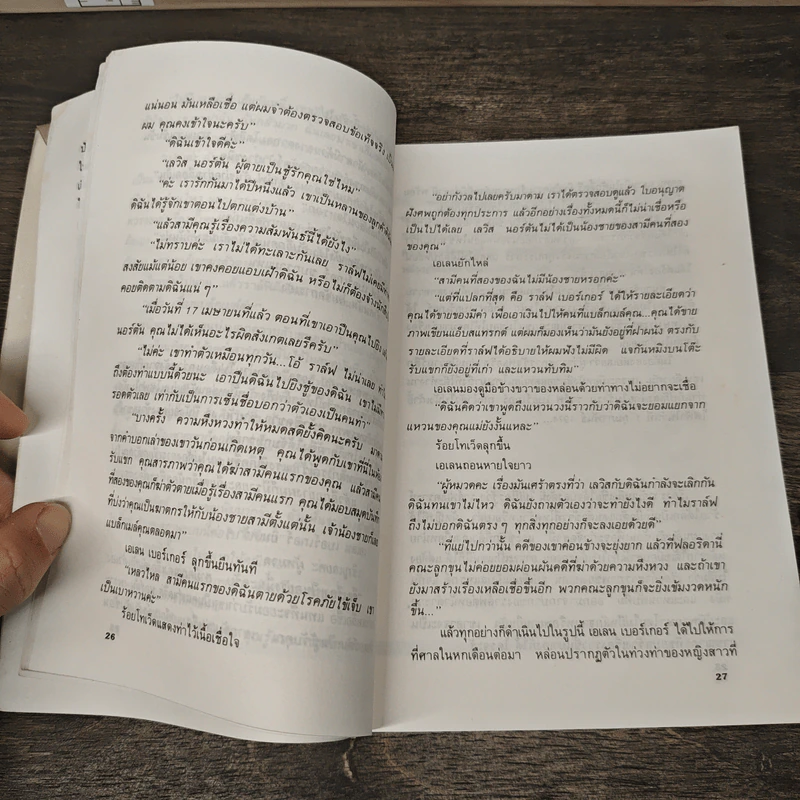 แน่นอน มันเหลือเชื่อ แต่ผมจำต้องตรวจสอบข้อเท็จจริง
ผม คุณคงเข้าใจนะครับ”
“ดิฉันเข้าใจดีค่ะ”
“เลวิส นอร์ตัน ผู้ตายเป็นชู้รักคุณใช่ไหม”
“ค่ะ เรารักกันมาได้ปีหนึ่งแล้ว เขาเป็นหลานของลูกค้า
ดิฉันได้รู้จักเขาตอนไปตกแต่งบ้าน”
“แล้วสามีคุณรู้เรื่องความสัมพันธ์นี้ได้ยังไง”
“ไม่ทราบค่ะ เราไม่ได้ทะเลาะกันเลย ราล์ฟไม่เคย
สงสัยแม้แต่น้อย เขาคงคอยแอบเฝ้าดิฉัน หรือไม่ก็ต้องจ้าง
คอยติดตามดิฉันแน่ ๆ”
“เมื่อวันที่ 17 เมษายนที่แล้ว ตอนที่เขาเอาปืนคุณไปยิง
นอร์ตัน คุณไม่ได้เห็นอะไรผิดสังเกตเลยรึครับ”
“ไม่ค่ะ เขาทำตัวเหมือนทุกวัน...โอ้ ราล์ฟ ไม่น่าเลย
ถึงต้องทำแบบนี้ด้วยนะ เอาปืนดิฉันไปยิงชู้ของดิฉัน เขาไม่มี
รอดตัวเลย เท่ากับเป็นการเซ็นชื่อบอกว่าตัวเองเป็นคนทำ”
“บางครั้ง ความหึงหวงทำให้หมดสติยั้งคิดนะครับ
จากคำบอกเล่าของเขาวันก่อนเกิดเหตุ คุณได้พูดกับเขาที่นี่ในห้อง
รับแขก คุณสารภาพว่าคุณได้ฆ่าสามีคนแรกของคุณ แล้วสามีคน
ที่สองของคุณก็ฆ่าตัวตายเมื่อรู้เรื่องสามีคนแรก คุณได้มอบสมุดบันทึก
ที่บ่งว่าคุณเป็นฆาตกรให้กับน้องชายสามีตั้งแต่นั้น เจ้าน้องชายก็เลย
แบล็กเมล์คุณตลอดมา”
เอเลน เบอร์เกอร์ ลุกขึ้นยืนทันที
“เหลวไหล สามีคนแรกของดิฉันตายด้วยโรคภัยไข้เจ็บ เขา
เป็นเบาหวานค่ะ”
ร้อยโทเว็ดแสดงท่าไว้เนื้อเชื่อใจ
26
“อย่ากังวลไปเลยครับมาดาม เราได้ตรวจสอบดูแล้ว ใบอนุญาต
ฝังศพถูกต้องทุกประการ แล้วอีกอย่างเรื่องทั้งหมดนี้ก็ไม่น่าเชื่อหรือ
เป็นไปได้เลย เลวิส นอร์ตันไม่ได้เป็นน้องชายของสามีคนที่สอง
ของคุณ”
เอเลนยักไหล่
“สามีคนที่สองของฉันไม่มีน้องชายหรอกค่ะ”
“แต่ที่แปลกที่สุด คือ ราล์ฟ เบอร์เกอร์ ได้ให้รายละเอียดว่า
คุณได้ขายของมีค่า เพื่อเอาเงินไปให้คนที่แบล็กเมล์คุณ...คุณได้ขาย
ภาพเขียนแอ็บสแทรกต์ แต่ผมก็มองเห็นว่ามันยังอยู่ที่ฝาผนัง ตรงกับ
รายละเอียดที่ราล์ฟได้อธิบายให้ผมฟังไม่มีผิด แจกันหมิงบนโต๊ะ
รับแขกก็ยังอยู่ที่เก่า และแหวนทับทิม”
เอเลนมองดูมือข้างขวาของหล่อนด้วยท่าทางไม่อยากจะเชื่อ
“ดิฉันคิดว่าเขาพูดถึงแหวนวงนี้ราวกับว่าดิฉันจะยอมแยกจาก
แหวนของคุณแม่ยังงั้นแหละ”
ร้อยโทเว็ดลุกขึ้น
เอเลนถอนหายใจยาว
“ผู้หมวดคะ เรื่องมันเศร้าตรงที่ว่า เลวิสกับดิฉันกำลังจะเลิกกัน
ดิฉันทนเขาไม่ไหว ดิฉันยังถามตัวเองว่าจะทำยังไงดี ทำไมราล์ฟ
ถึงไม่บอกดิฉันตรงๆ ทุกสิ่งทุกอย่างก็จะลงเอยด้วยดี”
“ที่แย่ไปกว่านั้น คดีของเขาค่อนข้างจะยุ่งยาก แล้วที่ฟลอริดานี่
คณะลูกขุนไม่ค่อยยอมผ่อนผันคดีที่ฆ่าด้วยความหึงหวง และถ้าเขา
ยังมาสร้างเรื่องเหลือเชื่อขึ้นอีก พวกคณะลูกขุนก็จะยิ่งเข้มงวดหนัก
ขึ้น...”
แล้วทุกอย่างก็ดำเนินไปในรูปนี้ เอเลน เบอร์เกอร์ ได้ไปให้การ
ที่ศาลในหกเดือนต่อมา หล่อนปรากฏตัวในท่วงท่าของหญิงสาวที่
27